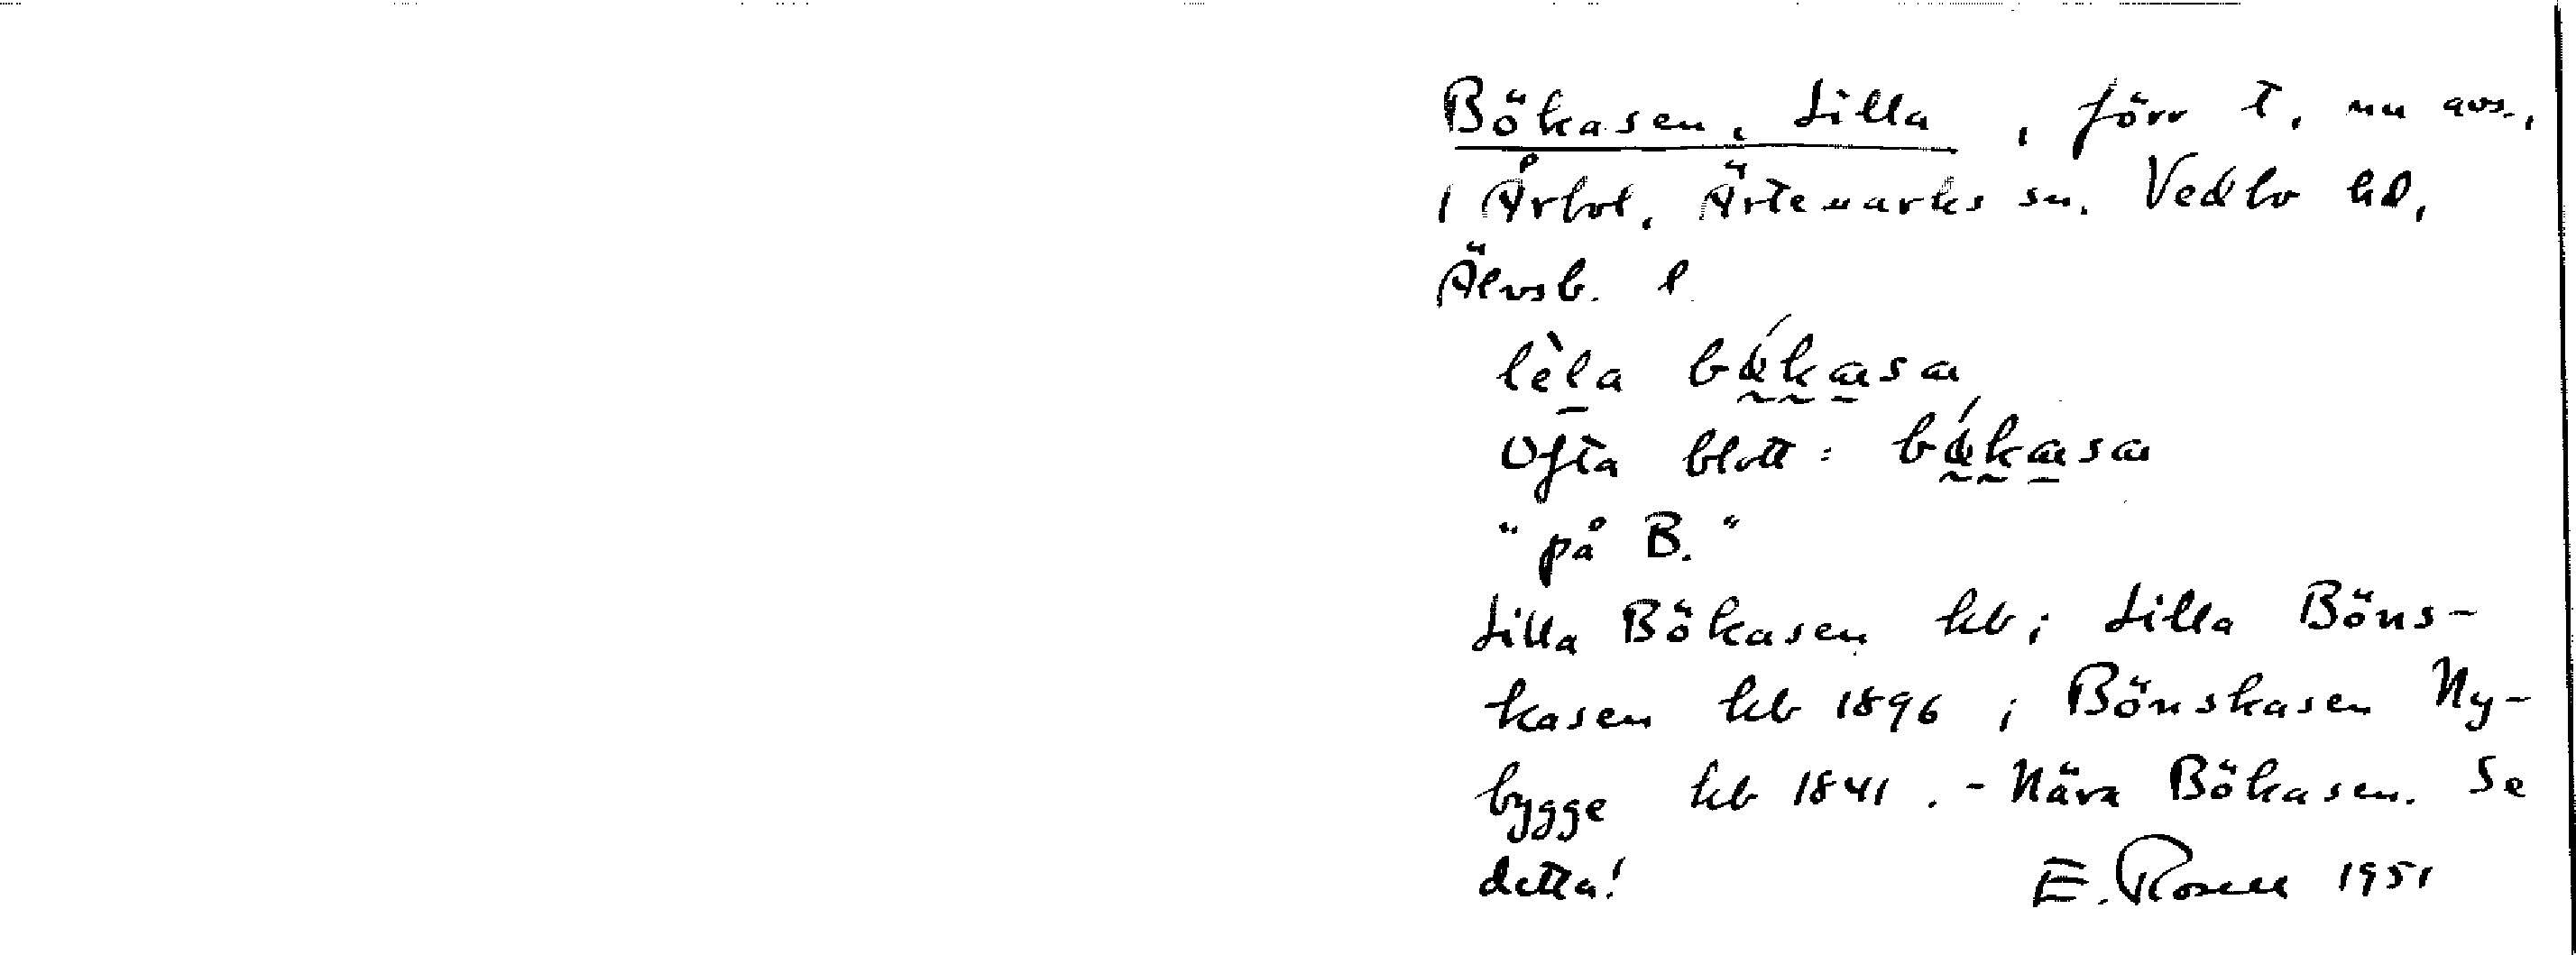 Bökasen, Lilla, förr t, nu avs.,
i Årbol, Ärtemarks sn. Vedbo hd,
Älvsb. l.
lèla
Ofta blott:
"på B."
Lilla Bökasen kb; Lilla Böns-
kasen kb 1896; Bönskasen Ny-
bygge kb 1841. - Nära Bökasen. Se
detta! E. Rosell 1951